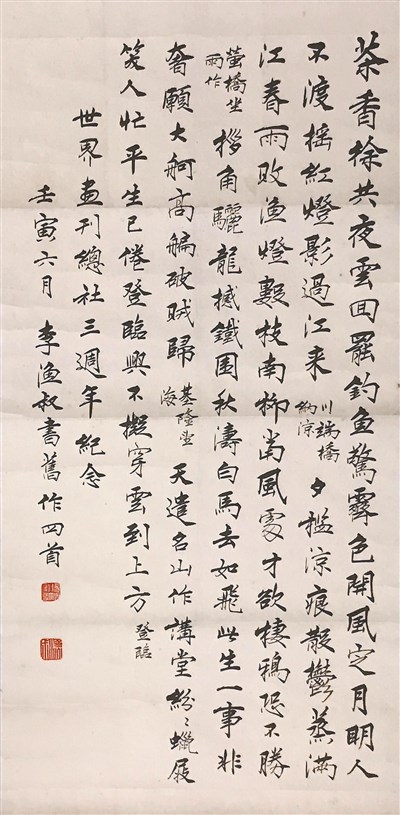 茶香徐共夜雲回罷釣魚驚霽色開風定月明人
不渡搖紅燈影過江來 川端橋納涼 夕檻涼痕散鬱蒸滿
江春雨敗漁燈數枝南柳當風處才欲棲鴉恐不勝
螢橋坐雨作 角驪龍撼鐵圍秋濤白馬去如飛此生一事非
奢願大舸高艑破賊歸 基隆望海 天遣名山作講堂紛〻蠟屐
笑人忙平生已倦登臨興不擬穿雲到上方 登臨
世界畫刊總社三週年紀念
壬寅六月 李漁叔書舊作四首